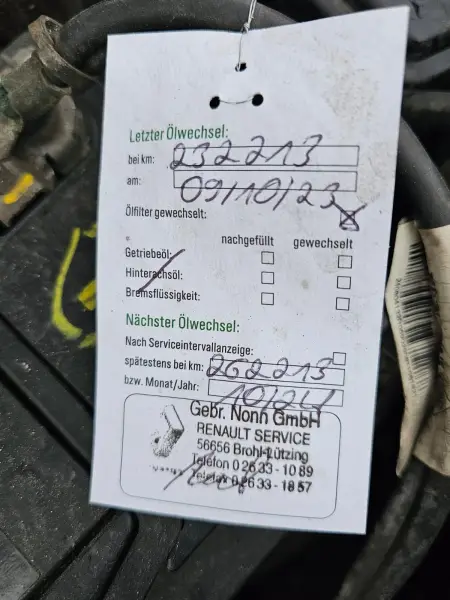 Letzter Ölwechsel:
bei km: 232213
am: 09/10/23
Ölfilter gewechselt: ☒
nachgefüllt gewechselt
Getriebeöl: ☐ ☐
Hinterachsöl: ☐ ☐
Bremsflüssigkeit: ☐ ☐
Nächster Ölwechsel:
Nach Serviceintervallanzeige: ☐
spätestens bei km: 262213
bzw. Monat/Jahr: 10/24
Gebr. Nonn GmbH
RENAULT SERVICE
56656 Brohl-Lützing
Telefon 0 26 33 - 10 89
Telefax 0 26 33 - 18 57